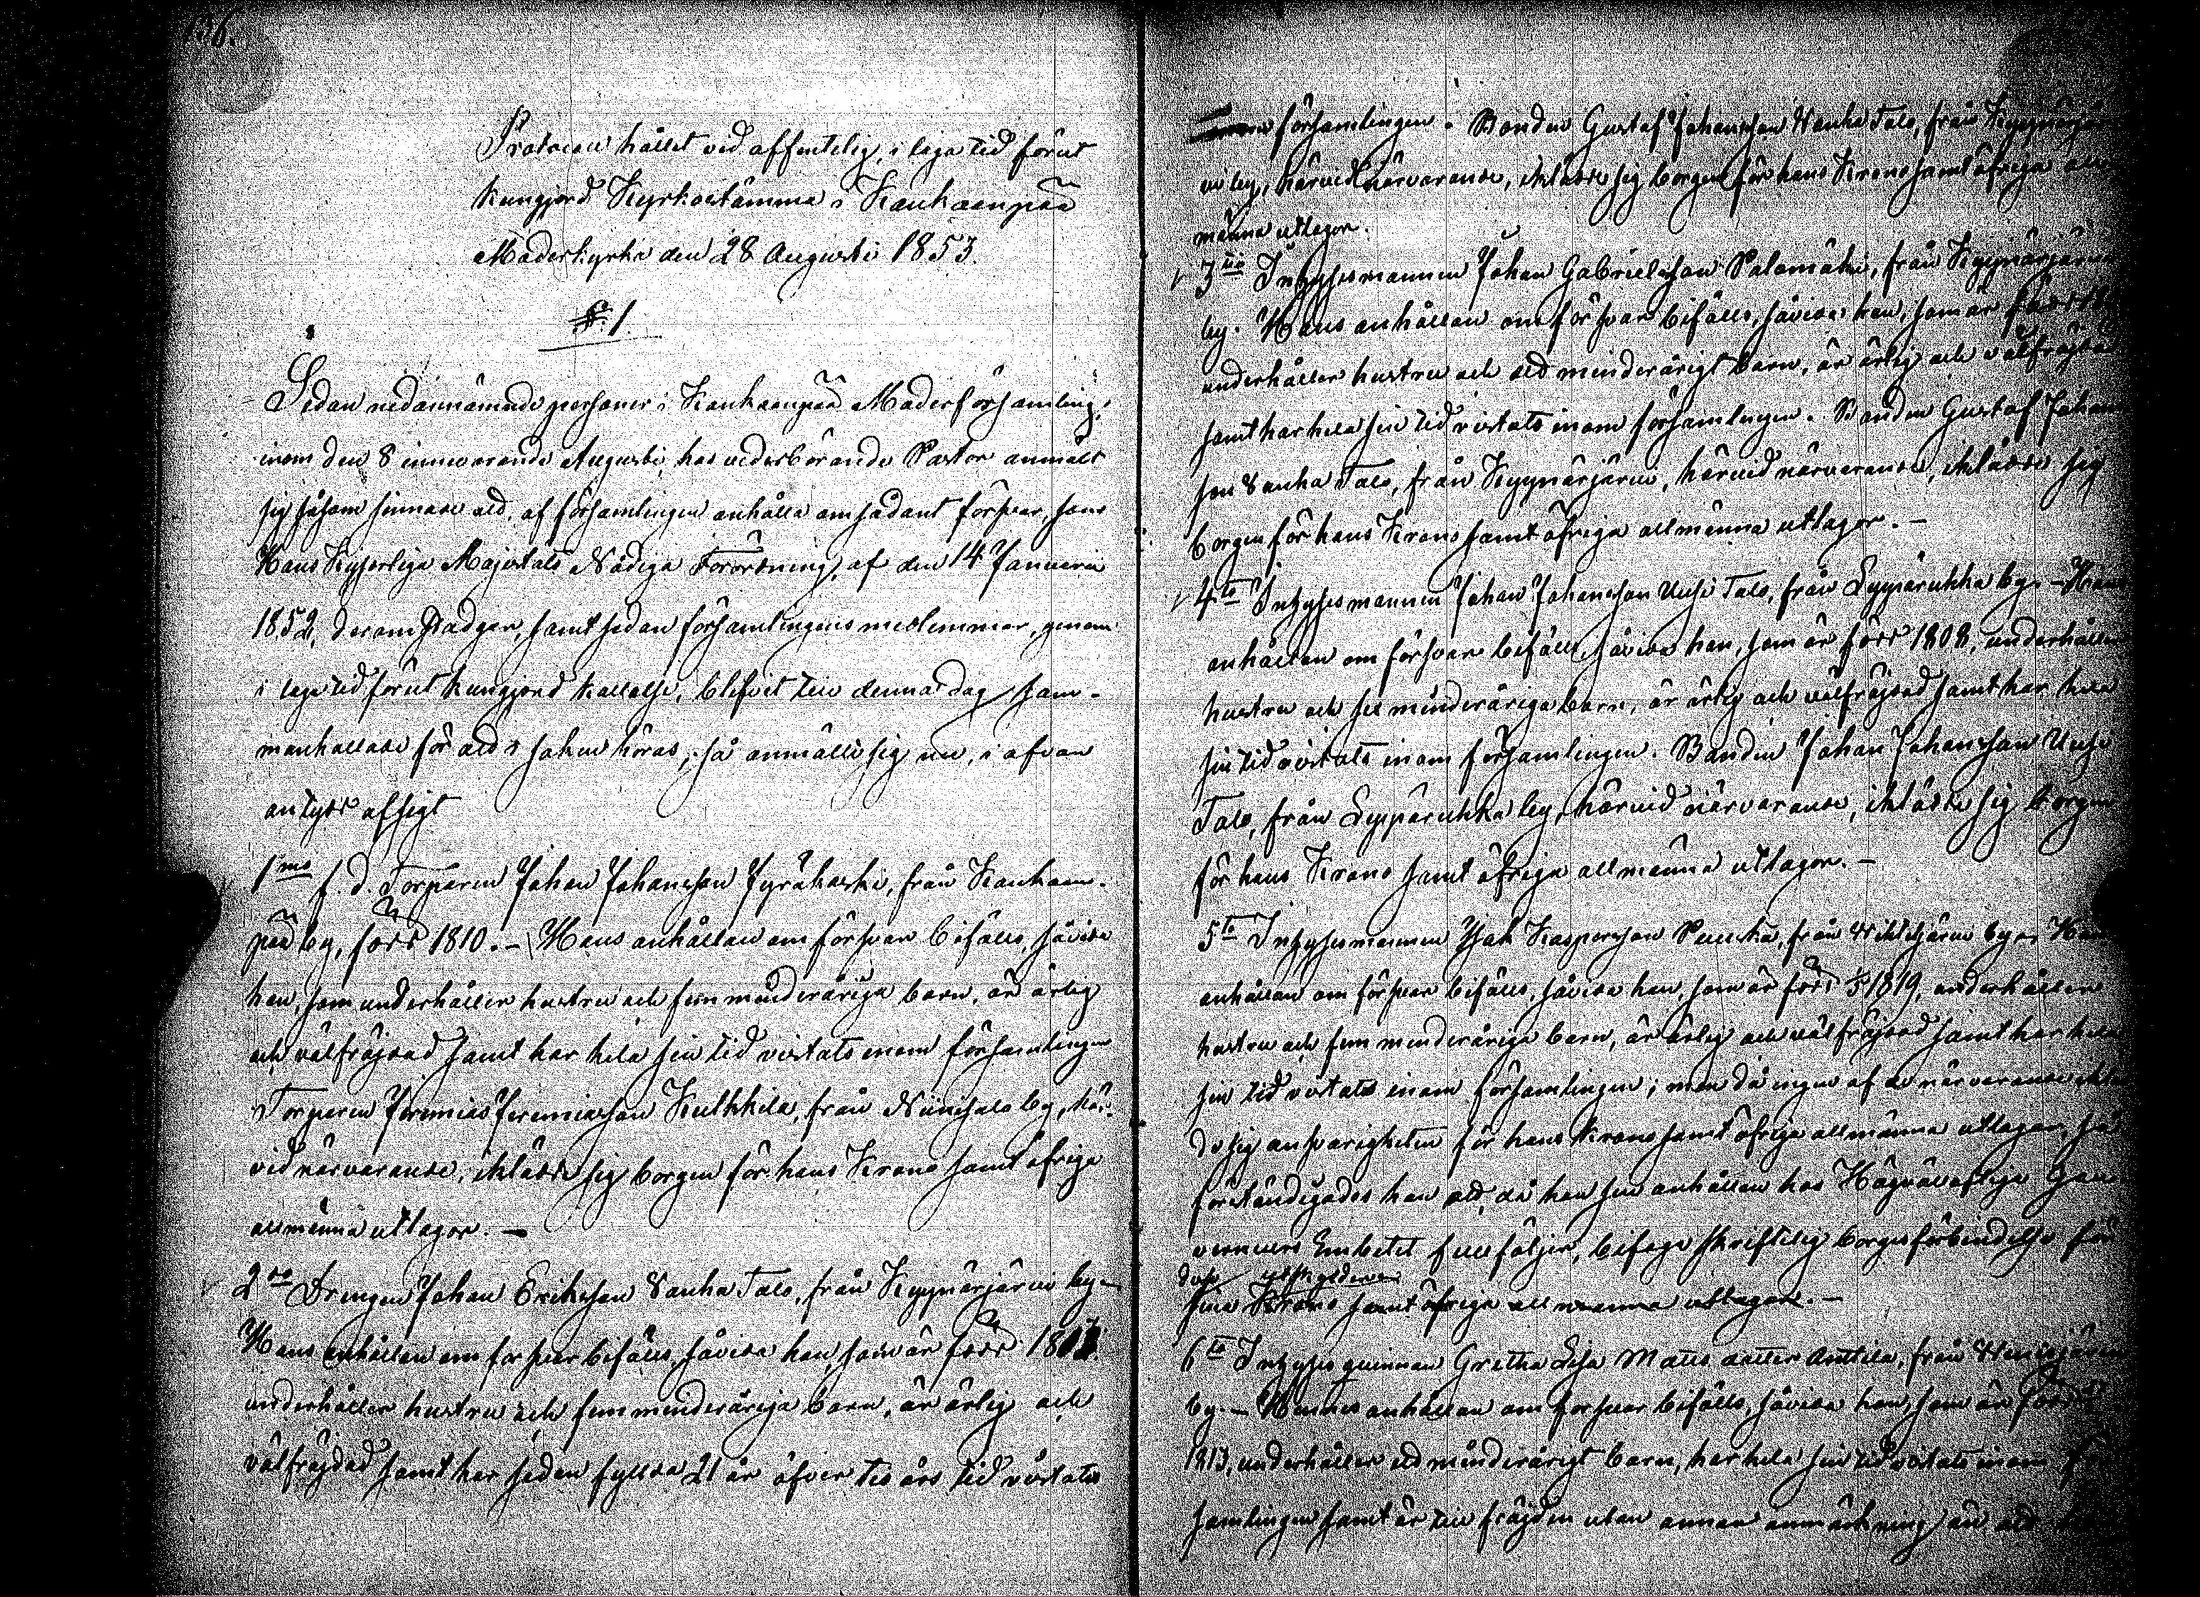 136.
Protocoll hållet vid offentelig, i laga tid förut
kungjord Kyrkostämma i Kankaanpää
Moderkyrka den 28 Augusti 1853.
§. 1.
Sedan nedannämnde personer i Kankaanpää Moderförsamling,
inom den 8 innevarande Augusti, hos vederbörande Pastor anmält
sig såsom sinnade att, af församlingen anhålla om sådant försvar, som
Hans Kejserliga Majestäts Nådiga Förordning, af den 14 Januarii
1852, derom stadgar, samt sedan församlingens medlemmar, genom
i laga tid förut kungjord kallelse, blifvit till denna dag sam-
mankallade för att i saken höras; så anmälte sig nu, i ofvan
antydt afsigt
1mo f. d. Torparen Johan Johansson Jyräkoski, från Kankaan-
pää by, född 1810. – Hans anhållan om försvar bifalls, såvida
han, som underhåller hustru och fem minderåriga barn, är ärlig
och välfräjdad samt har hela sin tid vistats inom församlingen
Torparen Jeremias Jeremiasson Kulkkila, från Niinisalo by, här-
vid närvarande, iklädde sig borgen för hans Krono samt öfriga
allmänna utlagor. –
2do Drengen Johan Eriksson Vanha Talo, från Kyynärjärvi by –
Hans anhållan om försvar bifalls, såvida han, som är född
underhåller hustru och fem minderåriga barn, är ärlig och
välfräjdad samt har sedan fyllda 21 år öfver tio års tid vistats
församlingen. Bonden Gustaf Johansson Vanha Talo, från Kyynärjär
vi by, härvid närvarande, iklädde sig borgen för hans Krono samt öfriga all
männa utlagor.
3tio Inhysesmannen Johan Gabrielsson Palomäki, från Kyynärjärvi
by. Hans anhållan om försvar bifalls, såvida han, som är född
underhåller hustru och ett minderårigt barn, är ärlig och välfräjdad
samt har hela sin tid vistats inom församlingen. Bonden Gustaf Johans
son Vanha Talo, från Kyynärjärvi, härvid närvarande, iklädde sig
borgen för hans Krono samt öfriga allmänna utlagor. –
4to Inhysesmannen Johan Johansson Uusi Talo, från Leppäruhka by. – Hans
anhållan om försvar bifalls, såvida han, som är född 1808, underhåller
hustru och sex minderåriga barn, är ärlig och välfräjdad samt har hela
sin tid vistats inom församlingen. Bonden Johan Johansson Uusi
Talo, från Leppäruhka by, härvid närvarande, iklädde sig borgen
för hans Krono samt öfriga allmänna utlagor. –
5to Inhysesmannen Isak Kaspersson från by. Hans
anhållan om försvar bifalls, såvida han, som är född 1819, underhåller
hustru och fem minderåriga barn, är ärlig och välfräjdad samt har hela
sin tid vistats inom församlingen; men då ingen af de närvarande iklä
de sig ansvarigheten för hans Krono samt öfriga allmänna utlagor, så
förständigades han att, då han sin anhållan hos Högvällofliga Gou
verneurs Embetet fullföljer, bifoga skriftelig borgesförbindelse för
sina Krono samt öfriga allmänna utlagor. –
6to Inhyses qvinnan Gretha Lisa Matts dotter Anttila, från
by. – Hennes anhållan om försvar bifalls, såvida hon, som är född
1813, underhåller ett minderårigt barn, har hela sin tid vistats inom för
samlingen samt är till fräjden utan annan anmärkning än att